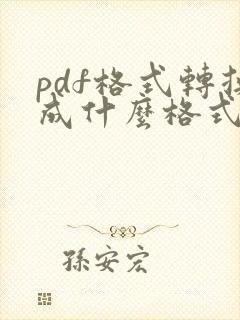 pdf格式轉换
成什麼格式
孫安宏